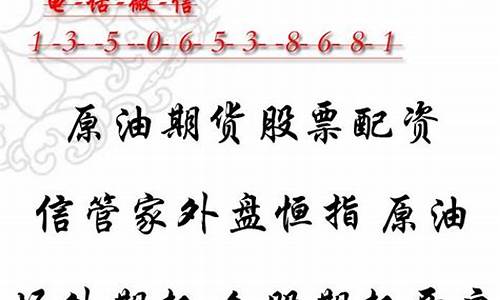 电-话-微-信
1-3--5--0-6-5-3--8-6-8-1
原油期货股票配资
信管家外盘恒指 原油
场外期权 个股期权